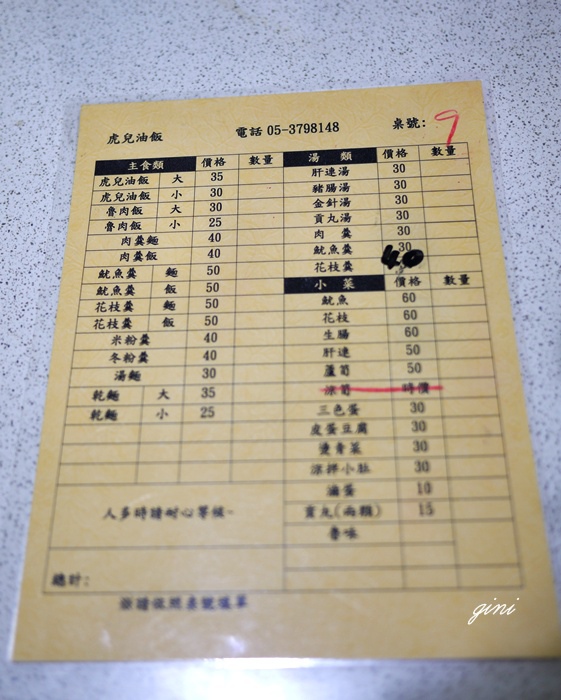 虎兒油飯 電話 05-3798148 桌號: 9
主食類 價格 數量
虎兒油飯 大 35
虎兒油飯 小 30
魯肉飯 大 30
魯肉飯 小 25
肉羹麵 40
肉羹飯 40
魷魚羹 麵 50
魷魚羹 飯 50
花枝羹 麵 50
花枝羹 飯 50
米粉羹 40
冬粉羹 40
湯麵 30
乾麵 大 35
乾麵 小 25
人多時請耐心等候~
總計:
湯 類 價格 數量
肝連湯 30
豬腸湯 30
金針湯 30
貢丸湯 30
肉 羹 30
魷魚羹 30
花枝羹 40
小 菜 價格 數量
魷魚 60
花枝 60
生腸 60
肝連 50
蘆筍 50
涼筍 時價
三色蛋 30
皮蛋豆腐 30
燙青菜 30
涼拌小肚 30
滷蛋 10
貢丸(兩顆) 15
魯味
※請依照桌號填單
gini